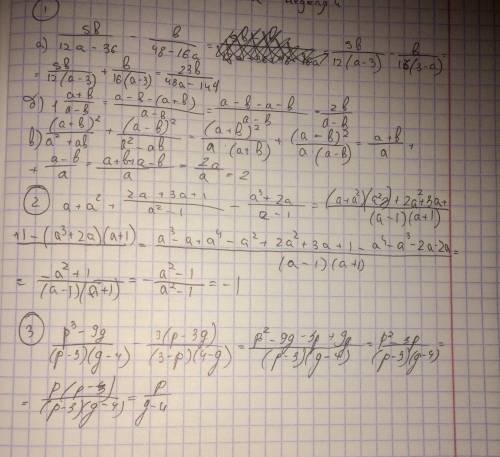 ①
а) 5b/(12a-36) - b/(48-16a) = = 5b/(12(a-3)) - b/(16(3-a)) =
= 5b/(12(a-3)) + b/(16(a-3)) = 23b/(48a-144)
б) 1 - (a+b)/(a-b) = (a-b-(a+b))/(a-b) = (a-b-a-b)/(a-b) = 2b/(a-b)
в) (a+b)²/(a²+ab) + (a-b)²/(a²-ab) = (a+b)²/(a·(a+b)) + (a-b)²/(a(a-b)) = (a+b)/a +
+ (a-b)/a = (a+b+a-b)/a = 2a/a = 2
② a+a² + (2a+3a+1)/(a²-1) - (a³+2a)/(a-1) = (a+a²)(a²-1)+2a²+3a+/((a-1)(a+1))
+1-(a³+2a)(a+1) = (a³-a+a⁴-a²+2a²+3a+1-a⁴-a³-2a-2a)/((a-1)(a+1)) =
= (-a²+1)/((a-1)(a+1)) = -(a²-1)/(a²-1) = -1
③ (p³-9g)/((p-3)(g-4)) - 3(p-3g)/((3-p)(4-g)) = (p²-9g-3p+9g)/((p-3)(g-4)) = (p²-3p)/((p-3)(g-4)) =
= p(p-3)/((p-3)(g-4)) = p/(g-4)